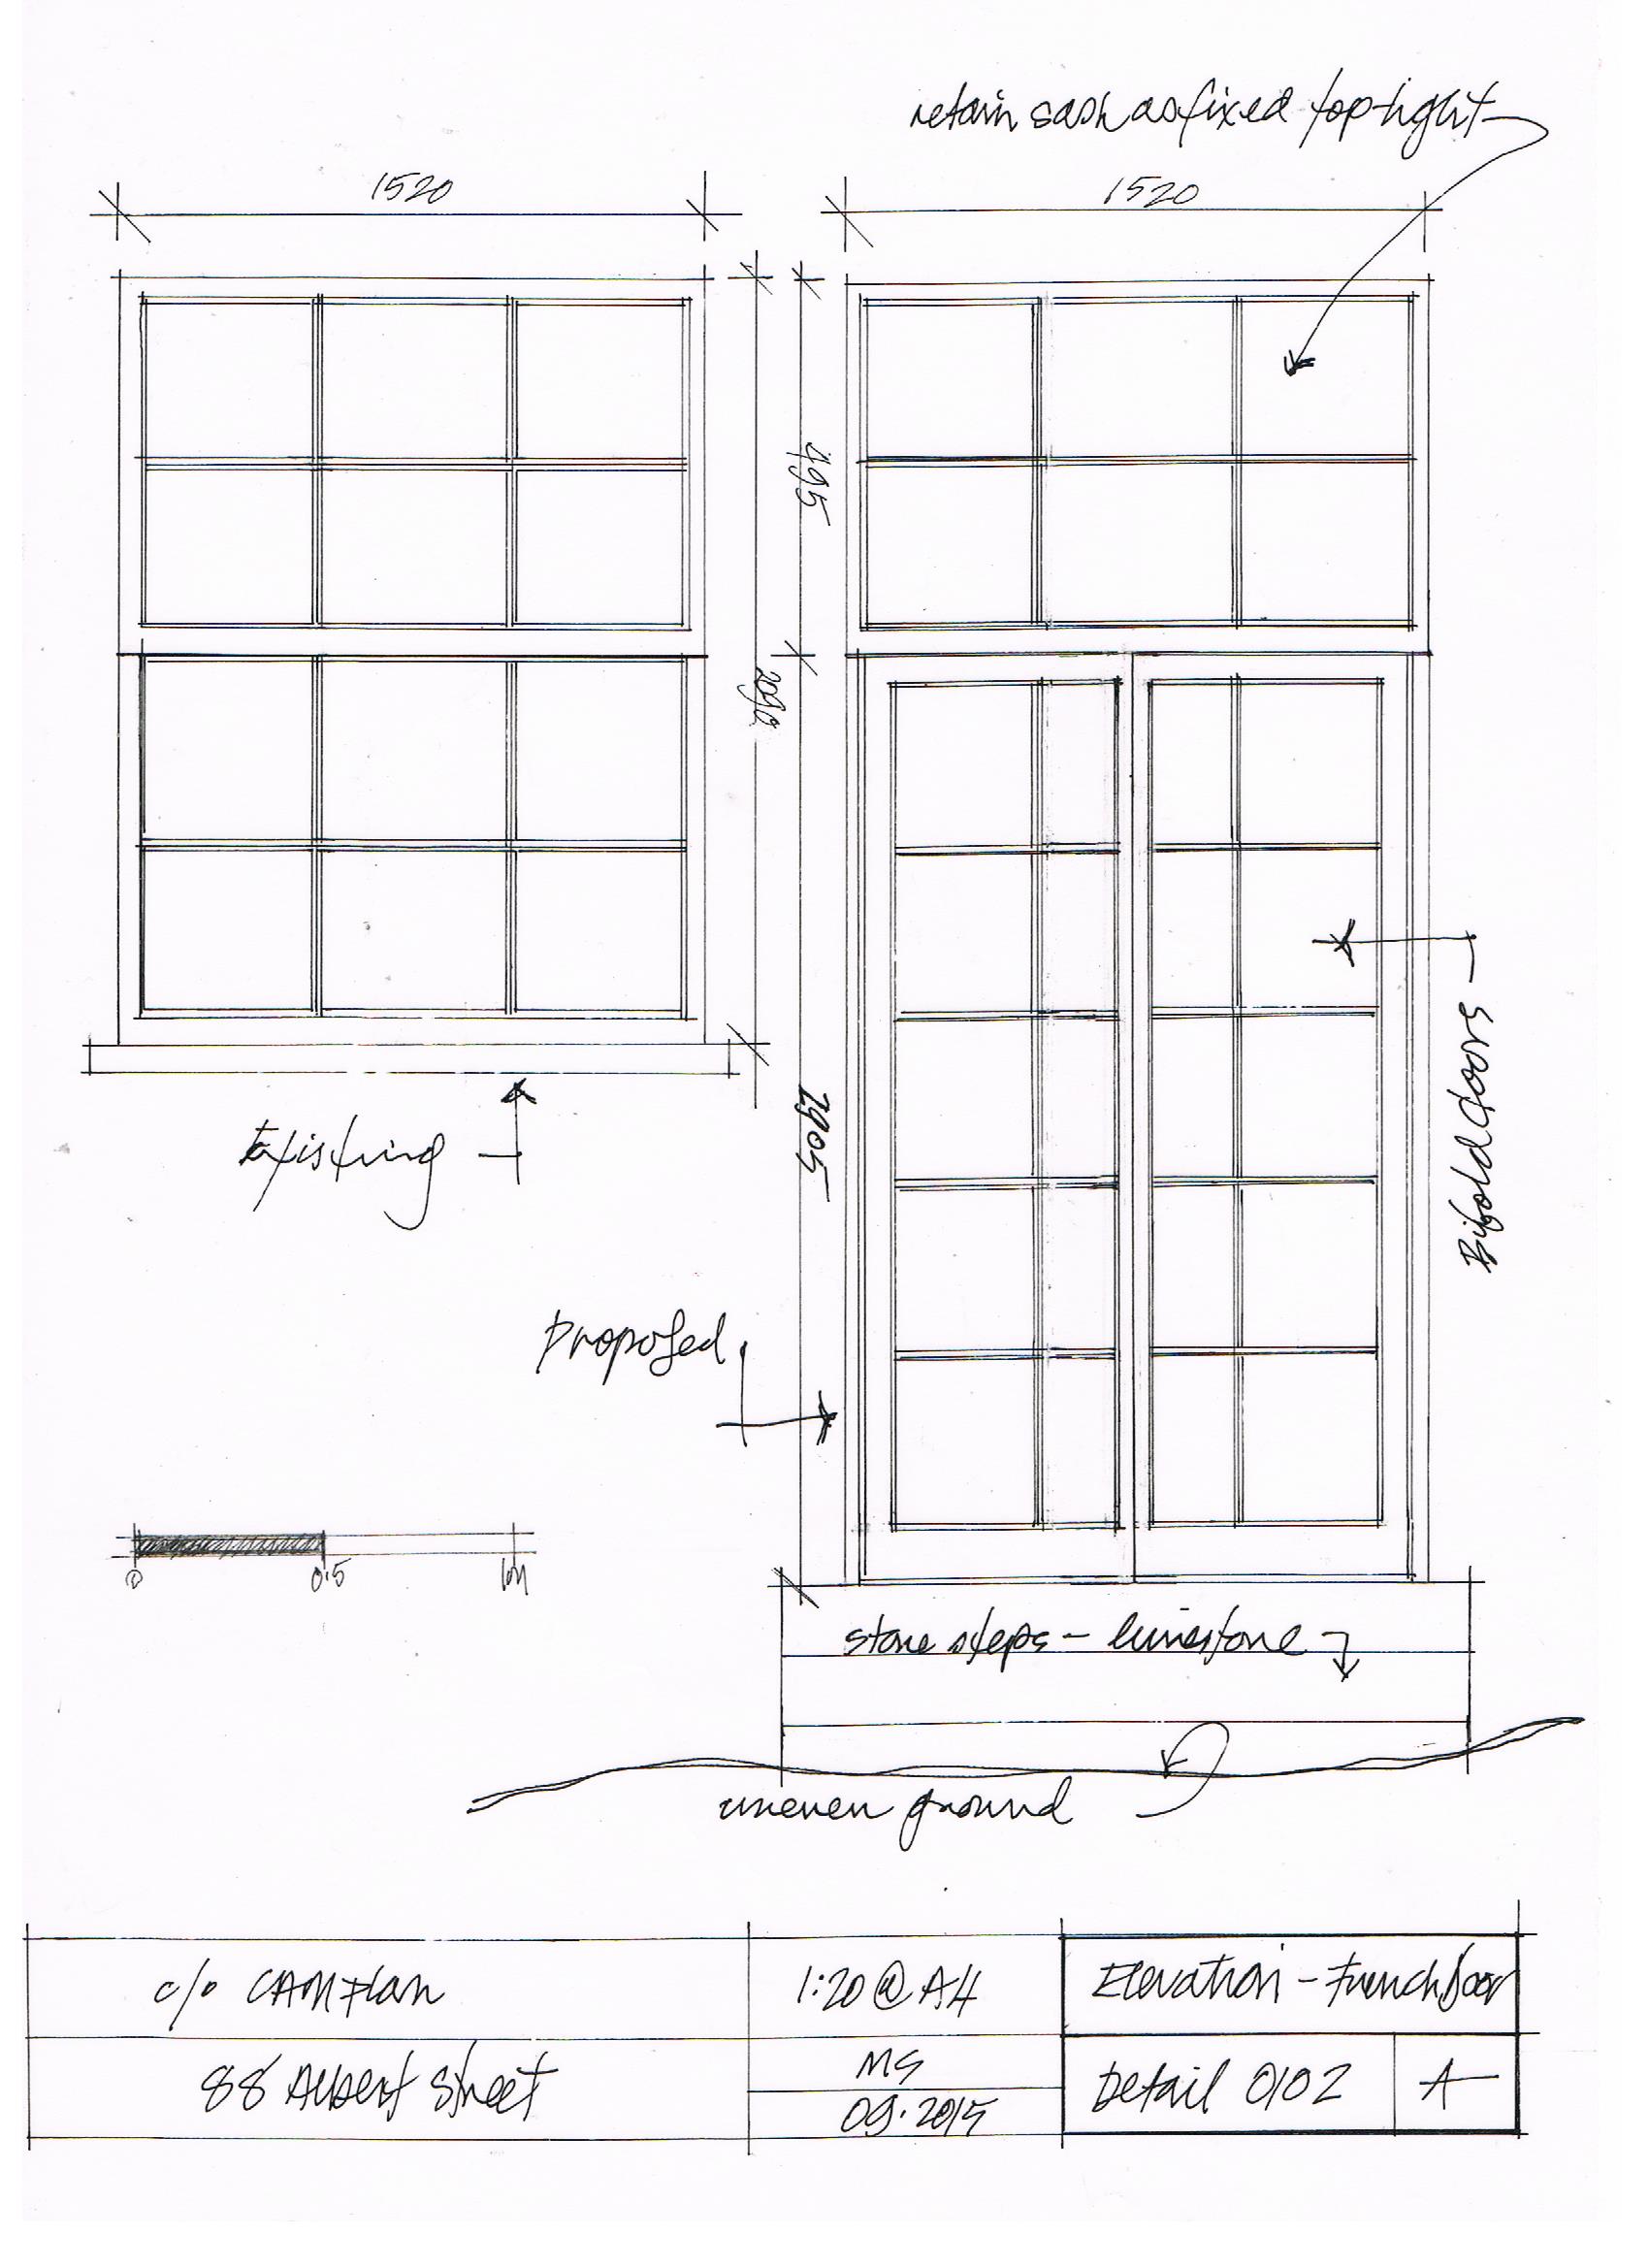 retain sash as fixed top-light
1520
1520
495
2905
Existing
Bifold doors
Proposed
0
0.5
1M
stone steps - limestone
uneven ground
c/o CAMPlan
1:20 @ A4
Elevation - French Door
88 Albert Street
MG
09.2015
Detail 0102
A